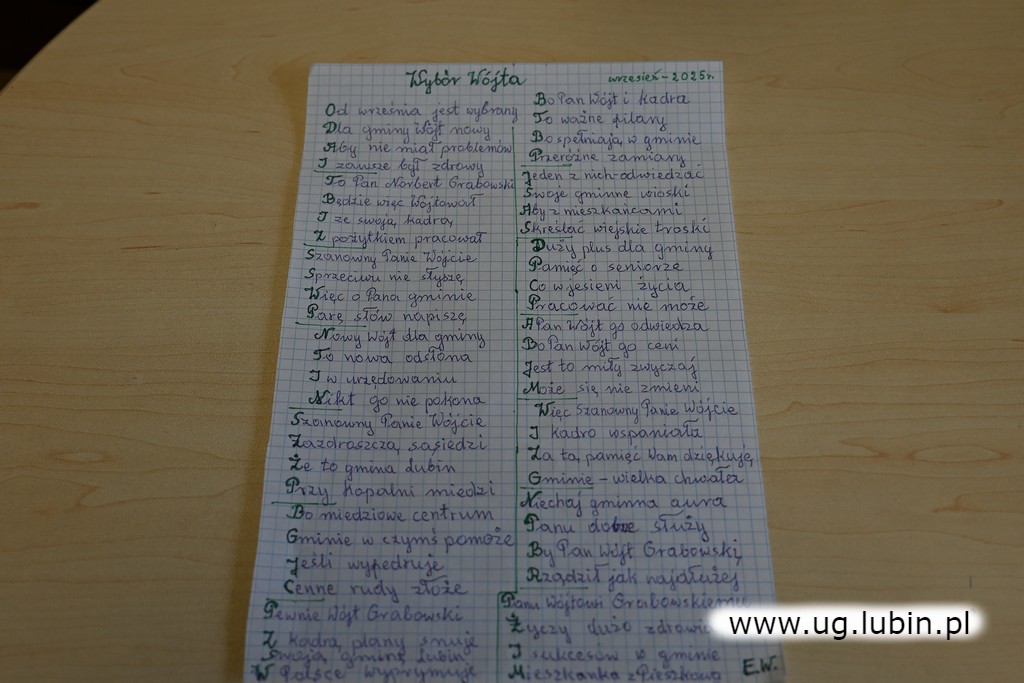 Wybór Wójta
wrzesień - 2025 r.
Od września jest wybrany
Dla gminy Wójt nowy
Aby nie miał problemów
I zawsze był zdrowy
To Pan Norbert Grabowski
Będzie więc Wójtował
I ze swoją kadrą,
Z pożytkiem pracował
Szanowny Panie Wójcie
Sprzeciwu nie słyszę
Więc o Pana gminie
Parę słów napiszę
Nowy Wójt dla gminy
To nowa odsłona
I w urzędowaniu
Nikt go nie pokona
Szanowny Panie Wójcie
Zazdroszczą sąsiedzi
Że to gmina Lubin
Przy kopalni miedzi
Bo miedziowe centrum
Gminie w czymś pomoże
Jeśli wypedruje
Cenne rudy złoże
Pewnie Wójt Grabowski
Z kadrą plany snuje
Swoją gminę Lubin
W Polsce wypromuje
Bo Pan Wójt i kadra
To ważne filary
Bo spełniają w gminie
Przeróżne zamiary
Jeden z nich - odwiedzać
Swoje gminne wioski
Aby z mieszkańcami
Skreślać wiejskie troski
Duży plus dla gminy
Pamięć o seniorze
Co w jesieni życia
Pracować nie może
A Pan Wójt go odwiedza
Bo Pan Wójt go ceni
Jest to miły zwyczaj
Może się nie zmieni
Więc Szanowny Panie Wójcie
I kadro wspaniała
Za tą pamięć Wam dziękuję,
Gminie - wielka chwała
Niechaj gminna aura
Panu dobrze służy
By Pan Wójt Grabowski,
Rządził jak najdłużej
Panu Wójtowi Grabowskiemu
Życzy dużo zdrowia
I sukcesów w gminie
Mieszkanka z Pieszkowa
E.W.
www.ug.lubin.pl